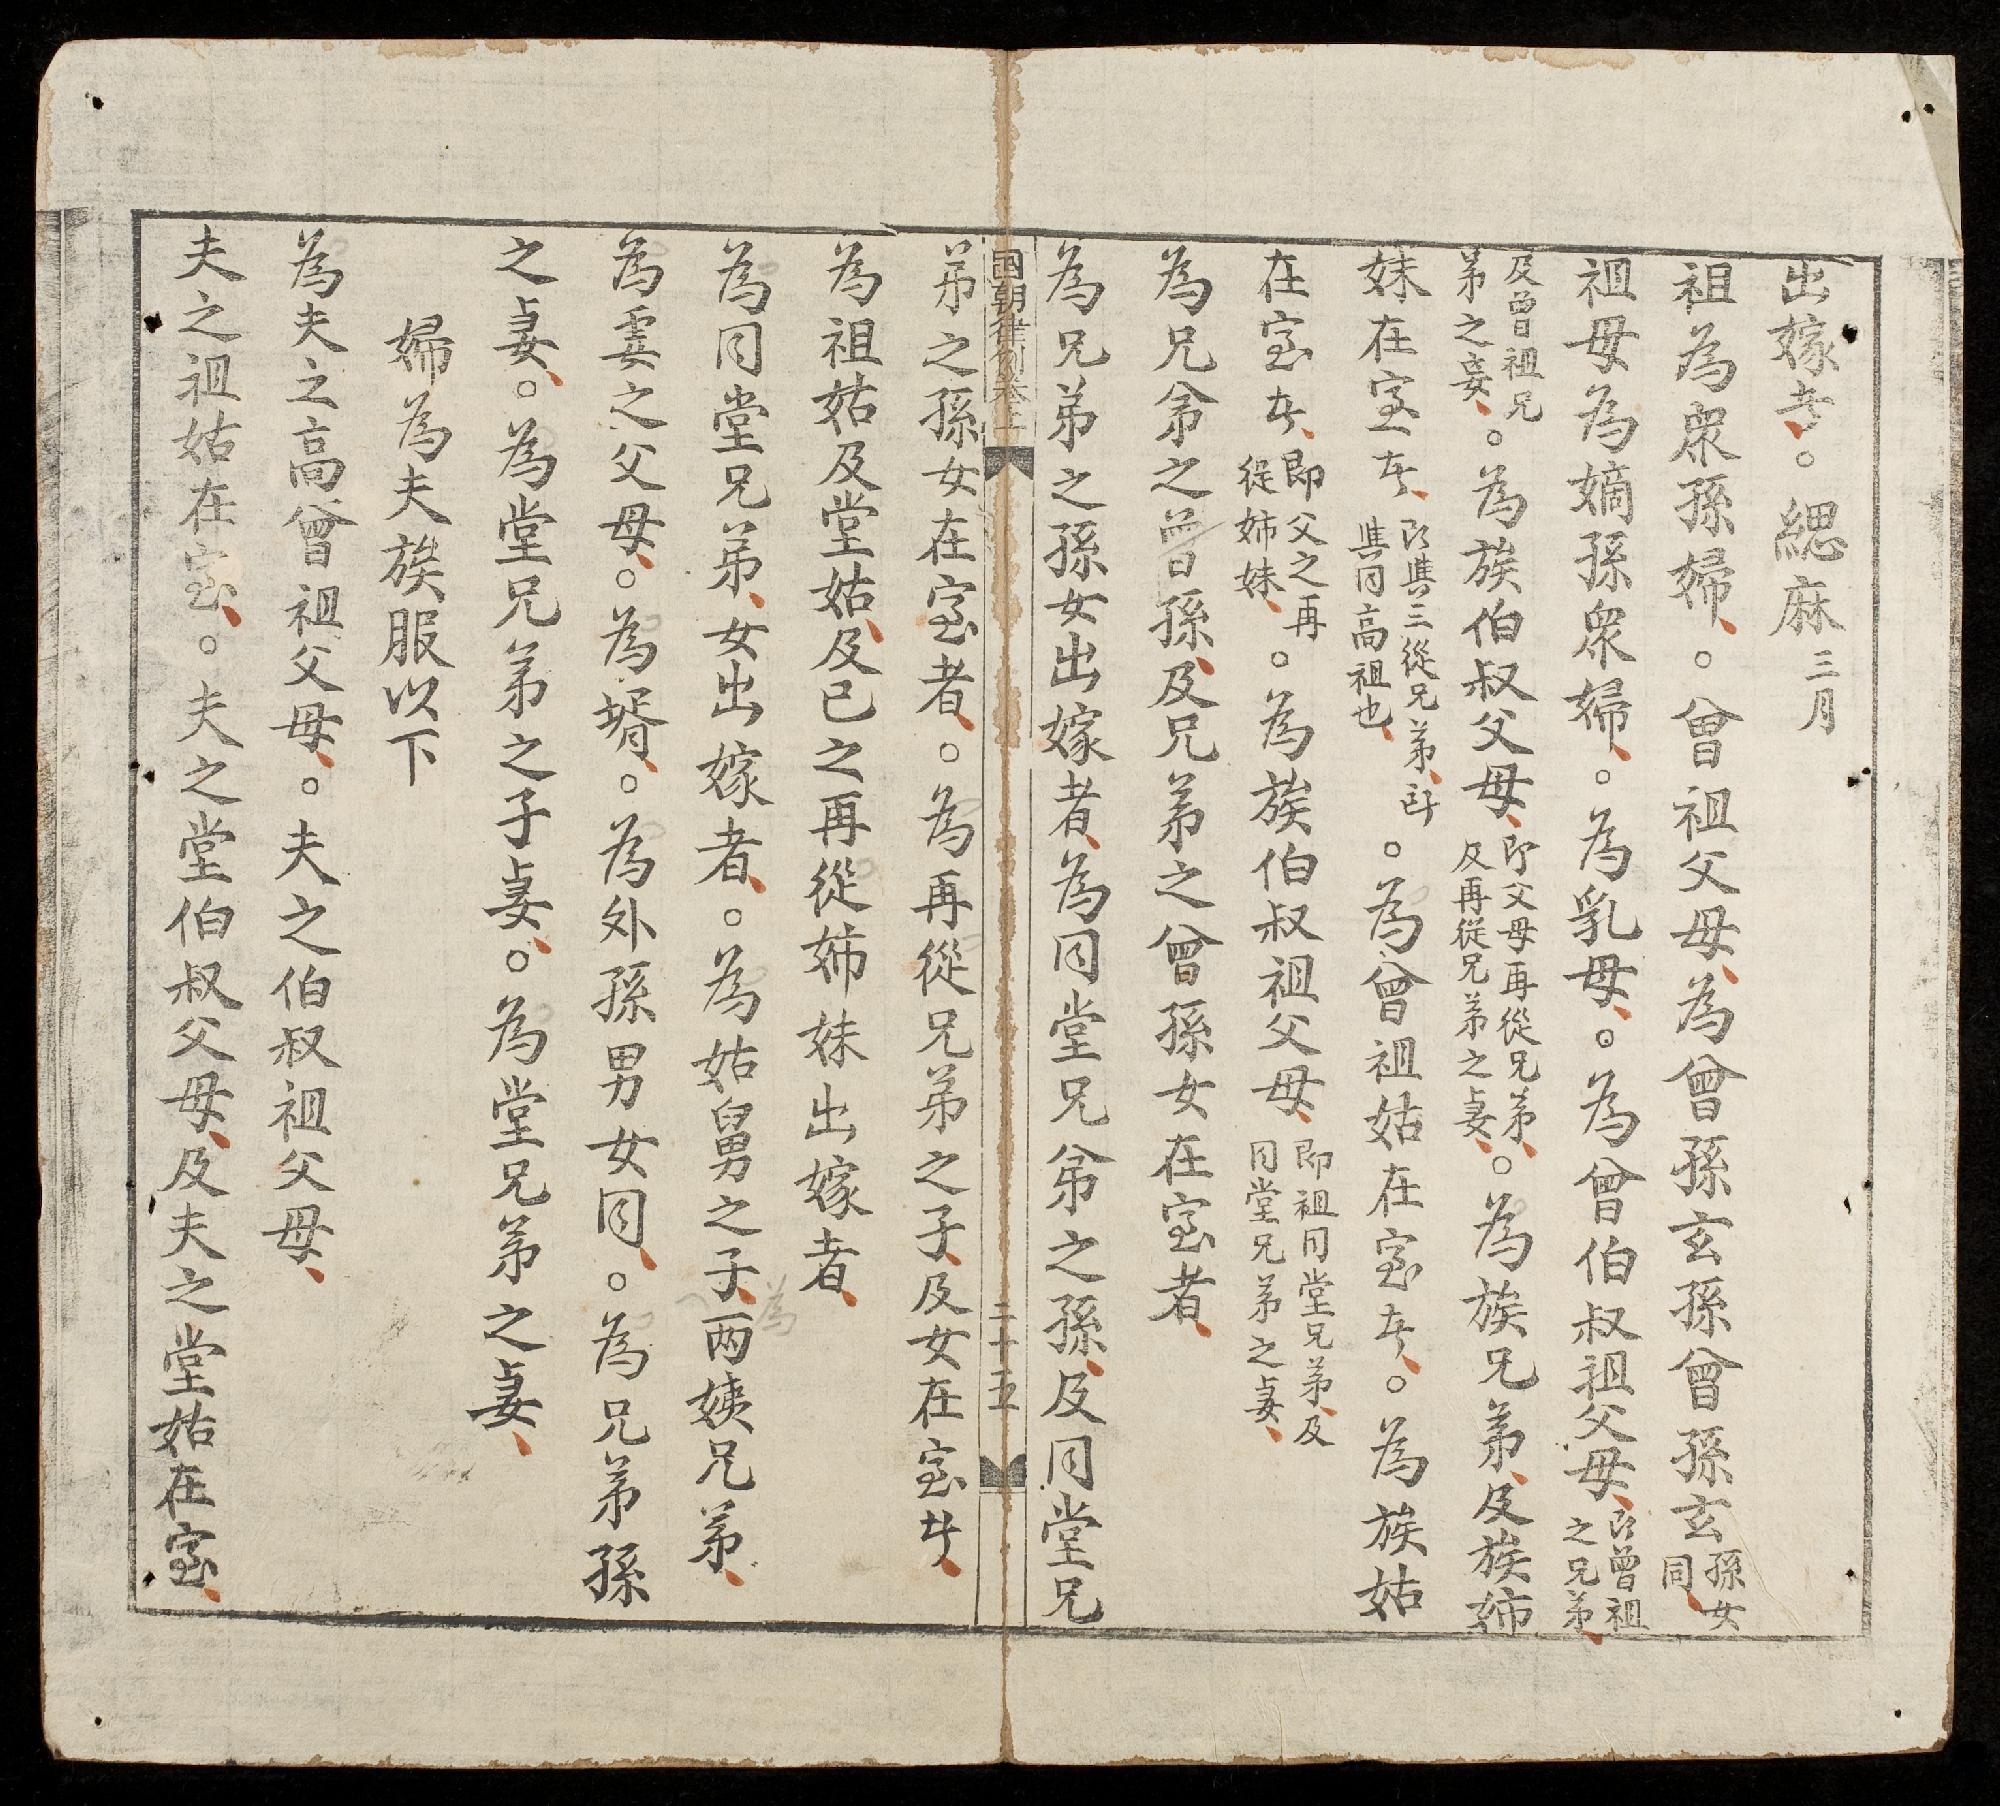 出嫁者。○緦麻三月
祖為衆孫婦。○曾祖父母、為曾孫玄孫曾孫玄孫女同、
祖母為嫡孫衆婦、○為乳母、○為曾伯叔祖父母、即曾祖之兄弟、
及曾祖兄弟之妻、○為族伯叔父母、即父母再從兄弟、及再從兄弟之妻、○為族兄弟、及族姉
妹在室者、即與三從兄弟、所與同高祖也、○為曾祖姑在室者、○為族姑
在室者、即父之再從姉妹、○為族伯叔祖父母、即祖同堂兄弟、及同堂兄弟之妻、
為兄弟之曾孫、及兄弟之曾孫女在室者、
為兄弟之孫女出嫁者、為同堂兄弟之孫、及同堂兄
国朝律例卷上 二十五
弟之孫女在室者、○為再從兄弟之子、及女在室者、
為祖姑及堂姑、及己之再從姉妹出嫁者、
為同堂兄弟、女出嫁者、○為姑舅之子、両姨兄弟、
為妻之父母、○為壻、○為外孫男女同、○為兄弟孫
之妻、○為堂兄弟之子妻、○為堂兄弟之妻、
婦為夫族服以下
為夫之高曾祖父母、○夫之伯叔祖父母、
夫之祖姑在室、○夫之堂伯叔父母、及夫之堂姑在室、